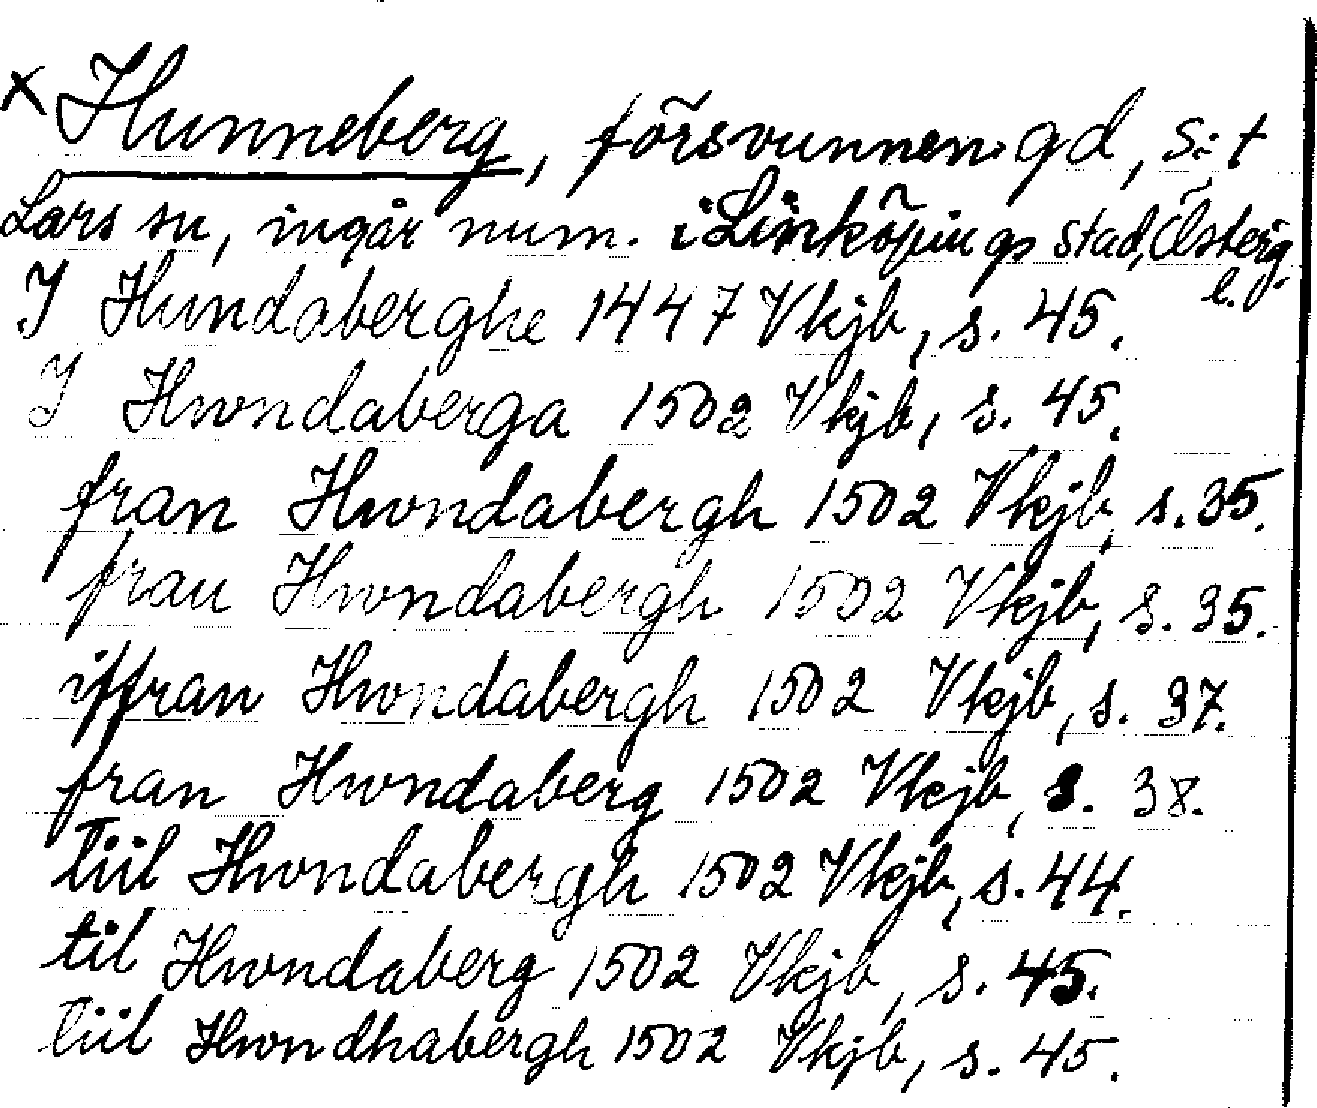 x Hunneberg, försvunnen gd, S:t
Lars sn, ingår num. i Linköpings stad, Östergl.
I Hundaberghe 1447 Vkjb, s. 45.
I Hwndaberga 1502 Vkjb, s. 45.
fran Hwndabergh 1502 Vkjb, s. 35.
fran Hwndabergh 1502 Vkjb, s. 35.
iffran Hwndabergh 1502 Vkjb, s. 37.
fran Hwndaberg 1502 Vkjb, s. 38.
tiil Hwndabergh 1502 Vkjb, s. 44.
til Hwndaberg 1502 Vkjb, s. 45.
tiil Hwndhabergh 1502 Vkjb, s. 45.